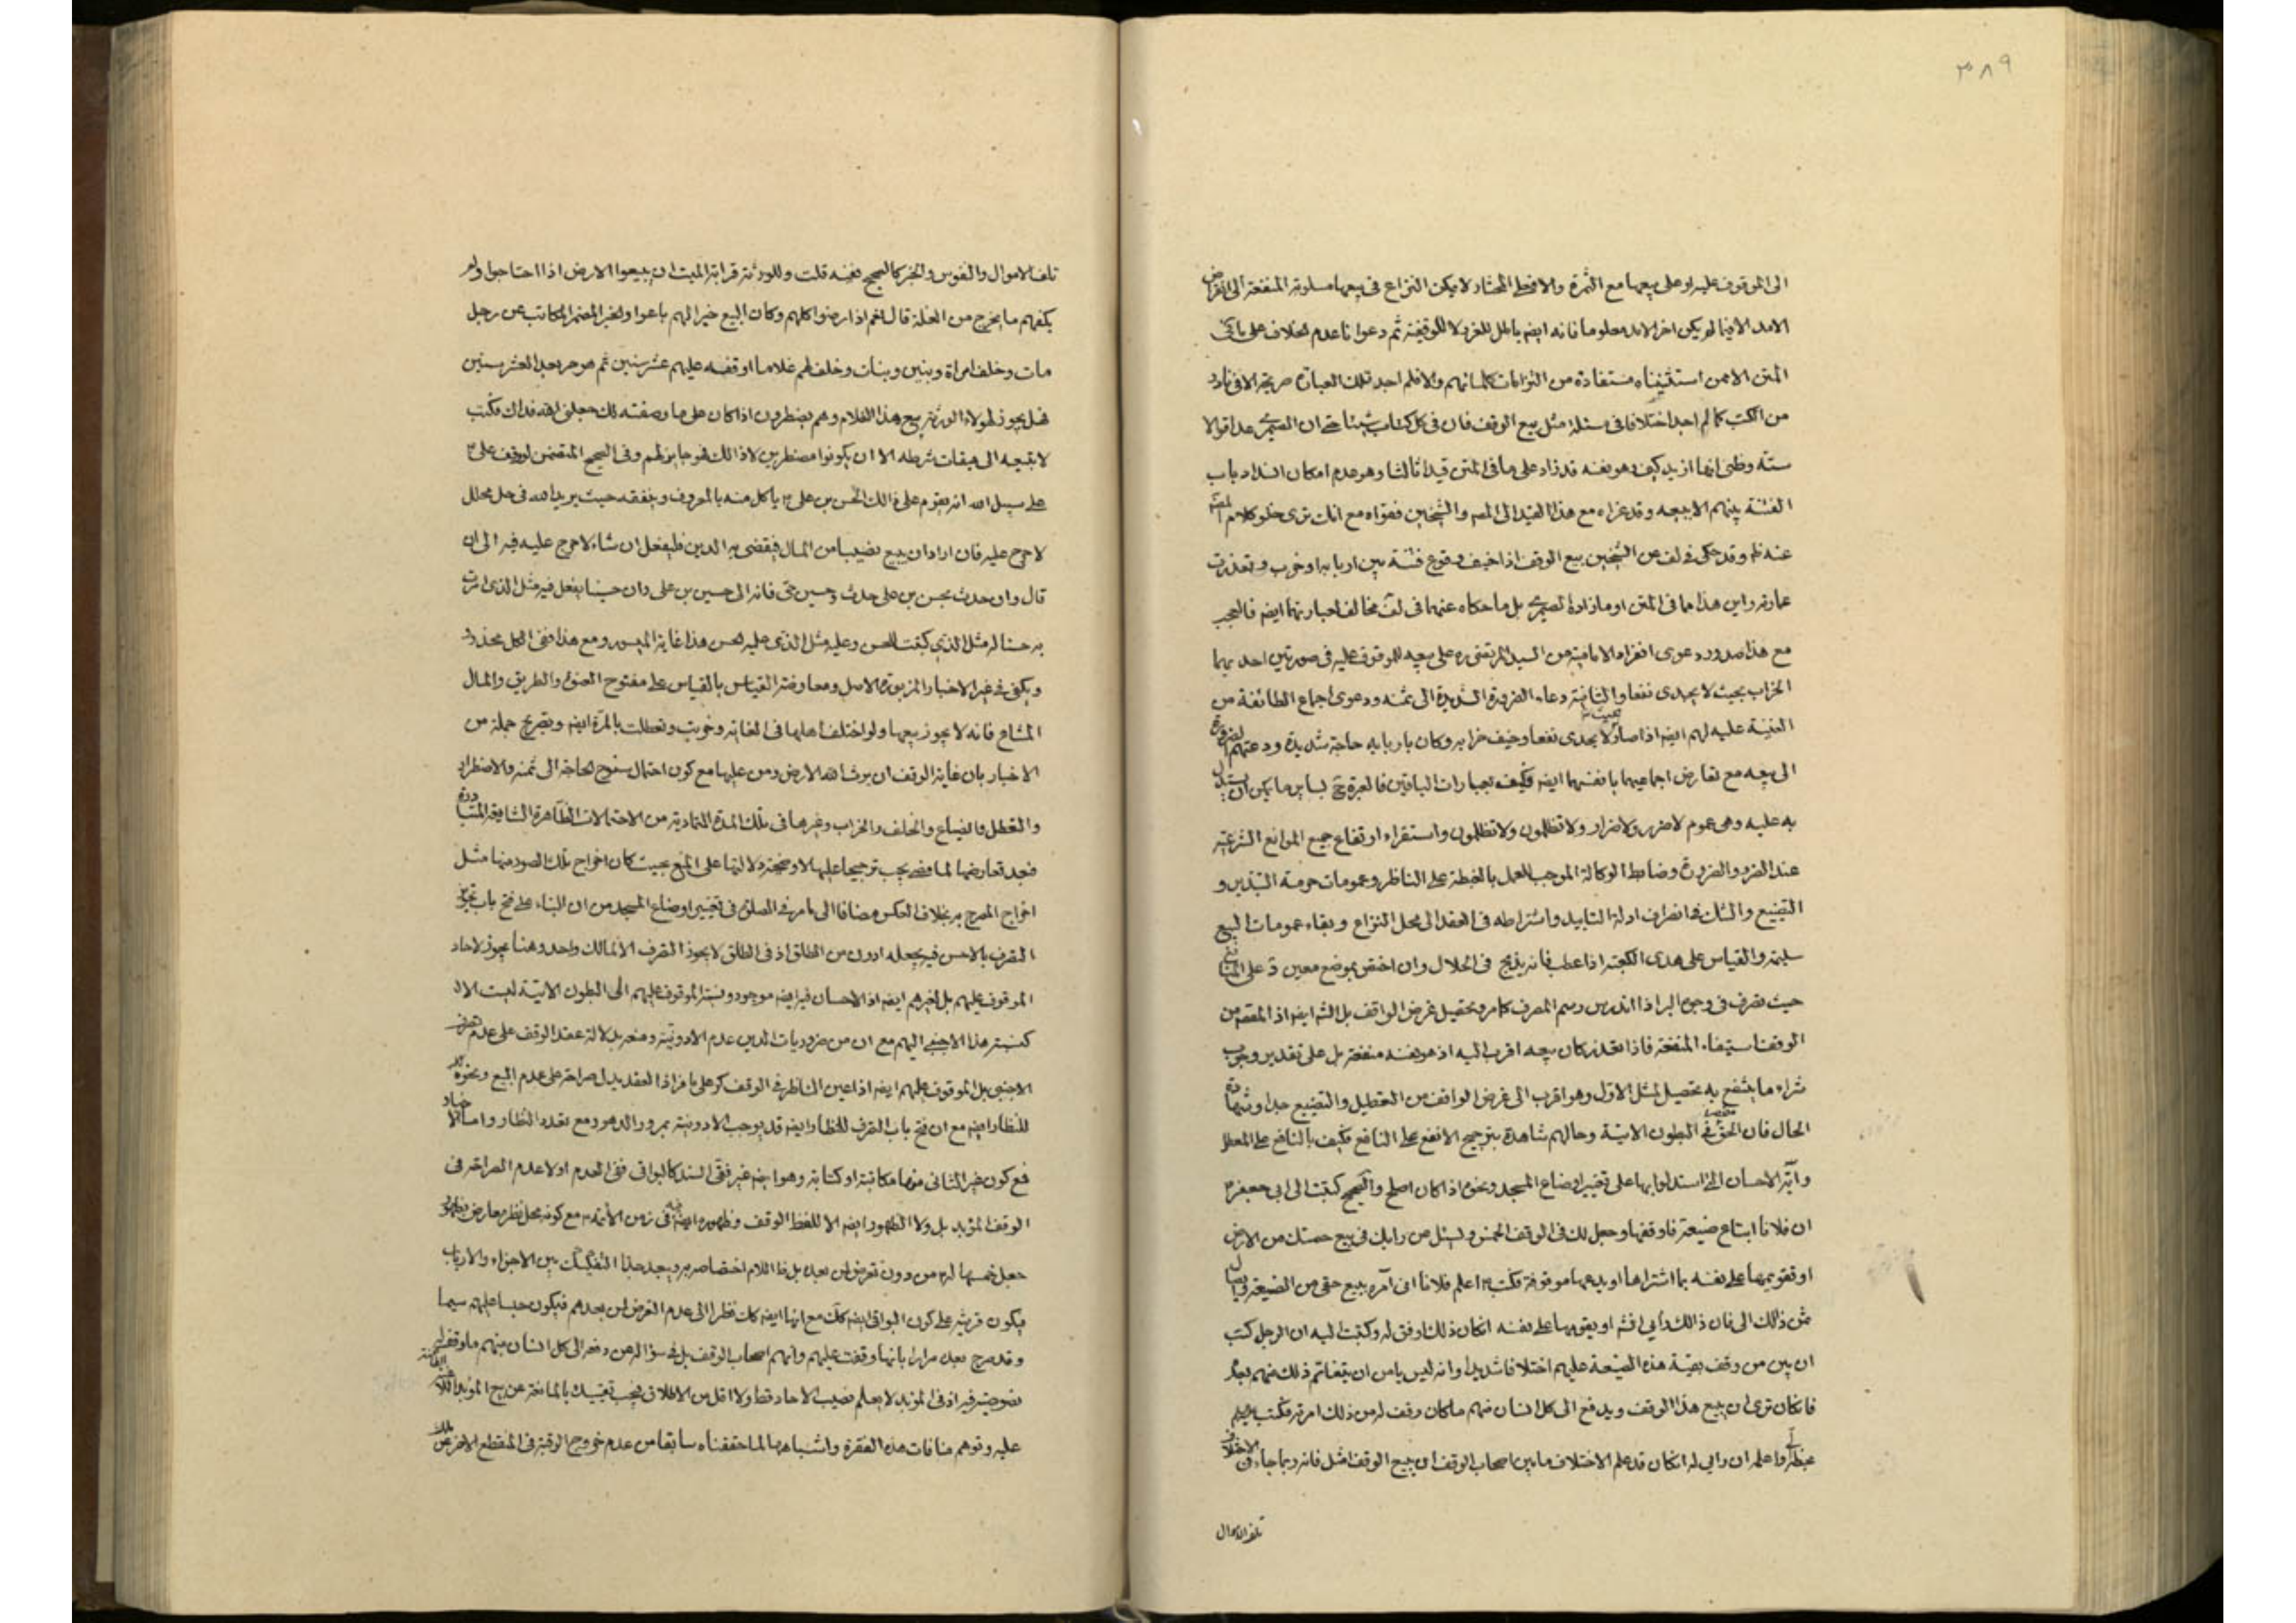 ٣٨٩
الى الموقوف عليه او على بيعها مع الثمرة والا فعلى المختار لا يمكن النزاع في بيعها مسلوبة المنفعة الى انقراض
الامد الا فيما لم يكن اخر الامد معلوما فانه ايضا باطل للغرر لا للوقفية ثم دعوانا عدم الخلاف على ما في
المتن الا ممن استثنيناه مستفادة من التزامات كلماتهم والا فلم اجد تلك العبارة صريحة الا في نادر
من الكتب كما لم اجد اختلافا في مسئلة مثل بيع الوقف فان في كل كتاب شيئا حتى ان الصيمري عد اقوالا
ستة وظني انها ازيد كيف وهو نفسه قد زاد على ما في المتن قيدا ثالثا وهو عدم امكان انسداد باب
الفتنة بينهم الا ببيعه وقد عزاه مع هذا القيد الى المص والشيخين فقواه مع انك ترى خلو كلام المصنف
عنه ظ وقد حكى في لف عن الشيخين بيع الوقف اذا خيف وقوع فتنة بين اربابه او خرب وتعذرت
عمارته واين هذا مما في المتن او ما زاده الصيمري بل ما حكاه عنهما في لف مخالف لعبارتهما ايضا فالعجب
مع هذا صدور دعوى انفراد الامامية من السيد المرتضى ره على بيعه للموقوف عليه في صورتين احديهما
الخراب بحيث لا يجدي نفعا والثانية دعاء الضرورة الشديدة الى ثمنه ودعوى اجماع الطائفة من
الغنية عليه لهم ايضا اذا صار بحيث لا يجدي نفعا وخيف خرابه وكان باربابه حاجة شديدة ودعتهم الضرورة
الى بيعه مع تعارض اجماعيهما بانفسهما ايضا فكيف بعبارات الباقين فالعبرة ح بساير ما يمكن ان يستدل
به عليه وهي عموم لا ضرر ولا ضرار ولا تظلمون ولا تظلمون واستقراء ارتفاع جميع الموانع الشرعية
عند الضرر والضرورة وضابط الوكالة الموجب للعمل بالغبطة على الناظر وعمومات حرمة التبذير و
التضييع والشك في انصراف ادلة التابيد واشتراطه في العقد الى محل النزاع وبقاء عمومات البيع
سليمة والقياس على هدى الكعبة اذا عطب فانه يذبح في الحلال وان اختص بموضع معين وعلى المنافع
حيث تصرف في وجوه البر اذا اندرس رسم المصرف كما مر وتحصيل غرض الواقف بل الله ايضا اذ المقصود من
الوقف استيفاء المنفعة فاذا تعذر كان بيعه اقرب اليه اذ هو نفسه منفعة بل على تقدير وجوب
شراء ما ينتفع به تحصيل لمثل الاول وهو اقرب الى غرض الواقف من التعطيل والتضييع جدا وشهادة
الحال فان مقتضى الحق في البطون الاتية وحالهم شاهدة بترجيح الانفع على النافع فكيف بالنافع على المعطل
وآية الاحسان التي استدلوا بها على تغيير اوضاع المسجد ونحوه اذا كان اصلح والصحيح كتبت الى ابي جعفر ع
ان فلانا ابتاع ضيعة فاوقفها وجعل لك في الوقف الخمس ويسئل عن رايك في بيع حصتك من الارض
او تقويمها على نفسه بما اشتراها او يدعها موقوفة فكتب ع اعلم فلانا اني آمره ببيع حقي من الضيعة وايصال
ثمن ذلك الى فان ذلك رأيي انشا او يقومها على نفسه ان كان ذلك اوفق له وكتبت اليه ان الرجل كتب
ان بين من وقف بقية هذه الضيعة عليهم اختلافا شديدا وانه ليس يامن ان يتفاقم ذلك بينهم بعده
فان كان ترى ان يبيع هذا الوقف ويدفع الى كل انسان منهم ما كان وقف له من ذلك امرته فكتب
بخطه الي واعلم ان رايي له ان كان قد علم الاختلاف ما بين اصحاب الوقف ان يبيع الوقف امثل فانه ربما جاء في الاختلاف
تلف الاموال
تلف الاموال والنفوس والخبر كالصحيح بنفسه قلت وللورثة قرابة الميت ان يبيعوا الارض اذا احتاجوا ولم
يكفهم ما يخرج من الغلة قال نعم اذا رضوا كلهم وكان البيع خيرا لهم باعوا والخبر المعتبر المكاتب عن رجل
مات وخلف امراة وبنين وبنات وخلف لهم غلاما اوقفه عليهم عشر سنين ثم هو حر بعد العشر سنين
فهل يجوز لهؤلاء الورثة بيع هذا الغلام وهم مضطرون اذا كان على ما وصفته لك جعلني الله فداك فكتب
لا تبيعه الى ميقات شرطه الا ان يكونوا مضطرين لا ذلك فهو جايز لهم وفي الصحيح المتضمن لوقف علي ع
على سبيل الله انه يقوم على ذلك الحسن بن علي ع ياكل منه بالمعروف وينفقه حيث يريد الله في حل محلل
لا حرج عليه فان اراد ان يبيع نصيبا من المال فيقضي به الدين فليفعل ان شاء لا حرج عليه فيه الى ان
قال وان حدث بحسن بن علي حدث وحسين حي فانه الى حسين بن علي وان حسينا يفعل فيه مثل الذي امرت
به حسنا له مثل الذي كتبت للحسن وعليه مثل الذي على الحسن هذا غاية الميسور ومع هذا ففي الكل محذور
ويكفي في غير الاخبار المزبورة الاصل ومعارضة القياس بالقياس على مفتوح العنوة والطريق والمال
المشاع فانه لا يجوز بيعها ولو اختلف اهلها في الغاية وخربت وتعطلت بالمرة ايضا وتصريح جملة من
الاخبار بان غاية الوقف ان يرث الله الارض ومن عليها مع كون احتمال سنوح الحاجة الى ثمنه والاضطرار
والتعطل والضياع والخلف والخراب وغيرها في تلك المدة المتمادية من الاحتمالات الظاهرة الشايعة المتبادرة
فبعد تعارضها لما مضى يجب ترجيحها عليها لاوضحية دلالتها على المنع بحيث كان اخراج تلك الصور منها مثل
اخراج المصرح به بخلاف العكس مضافا الى ما مر في الصلوة في تغيير اوضاع المسجد من ان البناء على فتح باب تجويز
التصرف بالاحسن فيه يجعله ادون من الطلق اذ في الطلق لا يجوز التصرف الا لمالك واحد وهنا يجوز لاحاد
الموقوف عليهم بل لغيرهم ايضا اذ الاحسان فيه ايضا موجود ونسبة الموقوف عليهم الى البطون الاتية ليست الا
كنسبة هذا الاجنبي اليهم مع ان من ضروريات الدين عدم الادونية ومنعه بدلالة عقد الوقف على عدم تصرف
الاجنبي بل الموقوف عليهم ايضا اذا عين الناظر في الوقف كر على ما فر اذ العقد يدل صراحة على عدم البيع ونحوه
للنظار ايضا مع ان فتح باب التصرف للنظار ايضا قد يوجب الادونية بمرور الدهور ومع تعدد النظار واما الاخبار
فمع كون غير الثاني منها مكاتبة او كتابة وهو ايضا غير نقي السند كالبواقي ففي العدم اولا عدم الصراحة في
الوقف المؤبد بل ولا الظهور ايضا الا للفظ الوقف وظهوره ايضا فيه في زمن الائمة ع مع كونه محل نظر معارض بظهور
جعل خمسها له من دون تعرض لمن بعده بل ظ اللام اختصاصه به ويبعد جدا التفكيك بين الاجزاء والارباب
فيكون قرينة على كون البواقي ايضا كك مع انها ايضا كك نظرا الى عدم التعرض لمن بعدهم فيكون حبسا عليهم سيما
وقد صرح بعده مرارا بانها وقفت عليهم وانهم اصحاب الوقف بل في سؤاله عن دفعه الى كل انسان منهم ما وقف له
نصوصية فيه اذ في المؤبد لا يعلم نصيب الاحاد قط ولا اقل من الاطلاق فيجب تقييده بالمانعة عن بيع المؤبد
عليه وتوهم منافات هذه الفقرة واشباهها لما حققناه سابقا من عدم خروج الوقف في المنقطع الاخر عن ملك